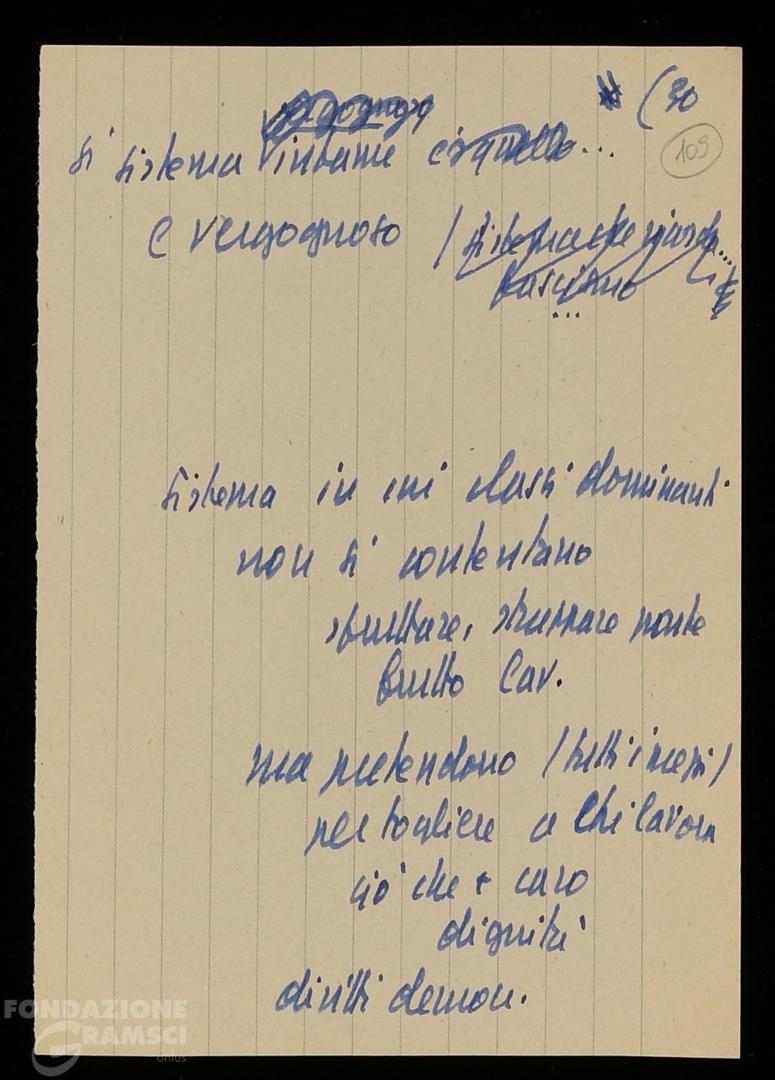 (30
109
si sistema infame
e vergognoso /
fascismo
...
sistema in cui classi dominanti
non si contentano
sfruttare, strappare parte
frutto lav.
ma pretendono / tutti i mezzi /
per togliere a chi lavora
ciò che + caro
dignità
diritti democr.
FONDAZIONE
GRAMSCI
onlus